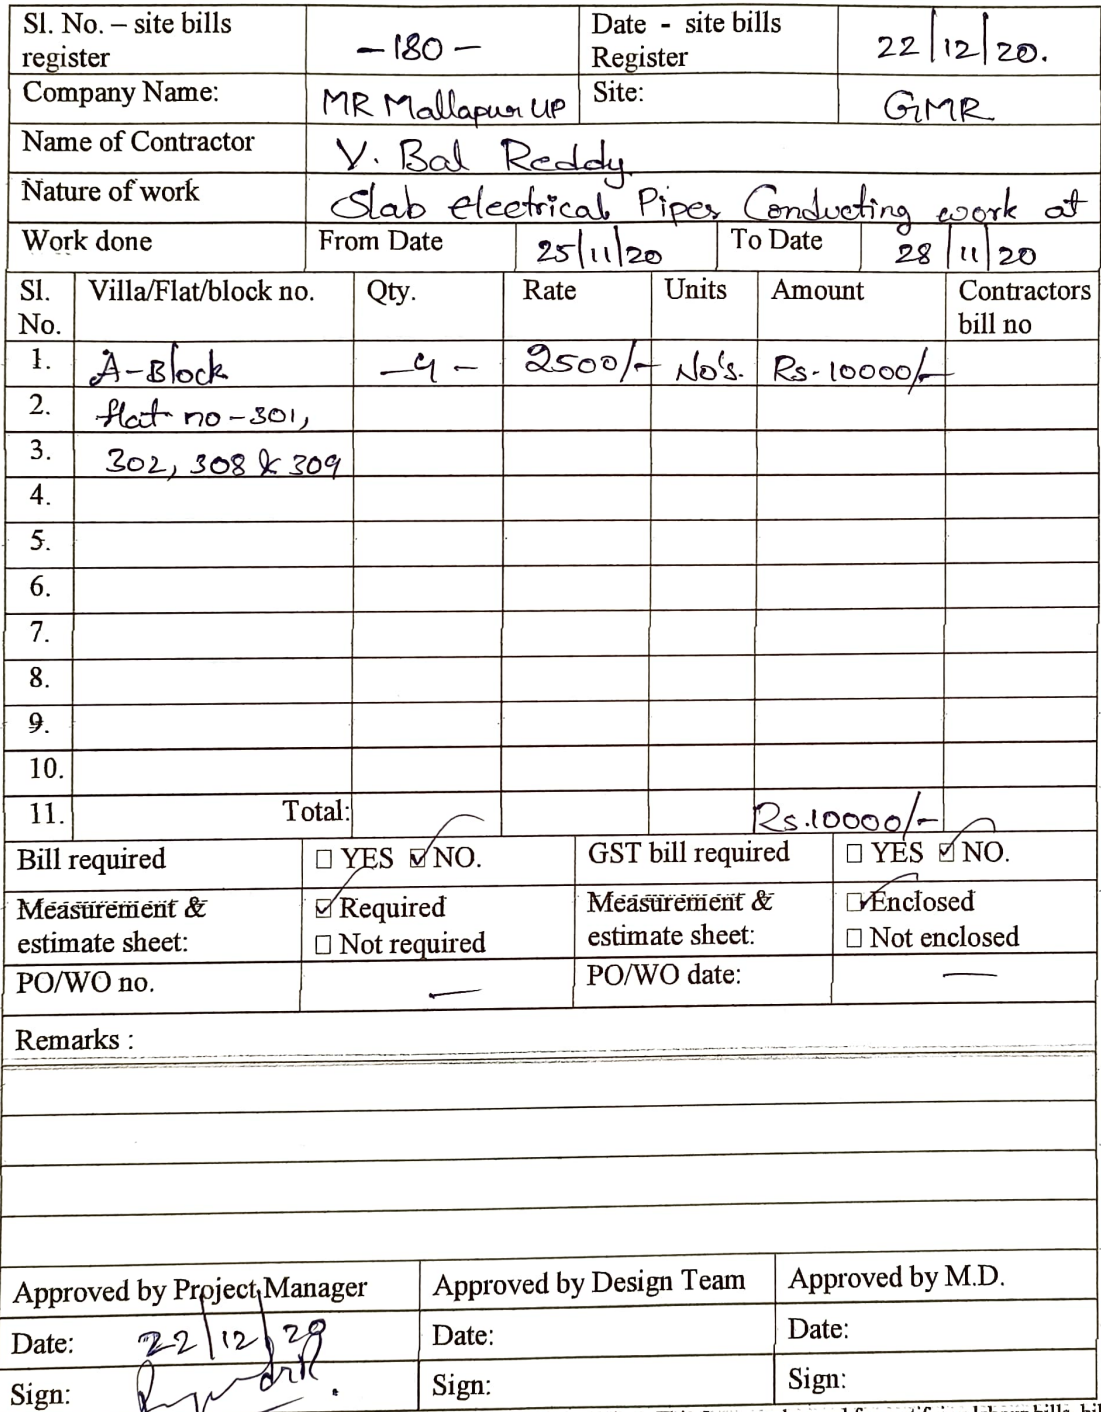 Sl. No. – site bills register – 180 – Date - site bills Register 22/12/20.
Company Name: MR Mallapur UP Site: GMR
Name of Contractor V. Bal Reddy
Nature of work Slab electrical Pipes Conducting work at
Work done From Date 25/11/20 To Date 28/11/20
Sl. No. Villa/Flat/block no. Qty. Rate Units Amount Contractors bill no
1. A-Block – 4 – 2500/- No's. Rs. 10000/-
2. flat no - 301,
3. 302, 308 & 309
4.
5.
6.
7.
8.
9.
10.
11. Total: Rs. 10000/-
Bill required □ YES ☑ NO. GST bill required □ YES ☑ NO.
Measurement & estimate sheet: ☑ Required □ Not required Measurement & estimate sheet: ☑ Enclosed □ Not enclosed
PO/WO no. — PO/WO date: —
Remarks :
Approved by Project Manager Approved by Design Team Approved by M.D.
Date: 22/12/20 Date: Date:
Sign: Sign: Sign: